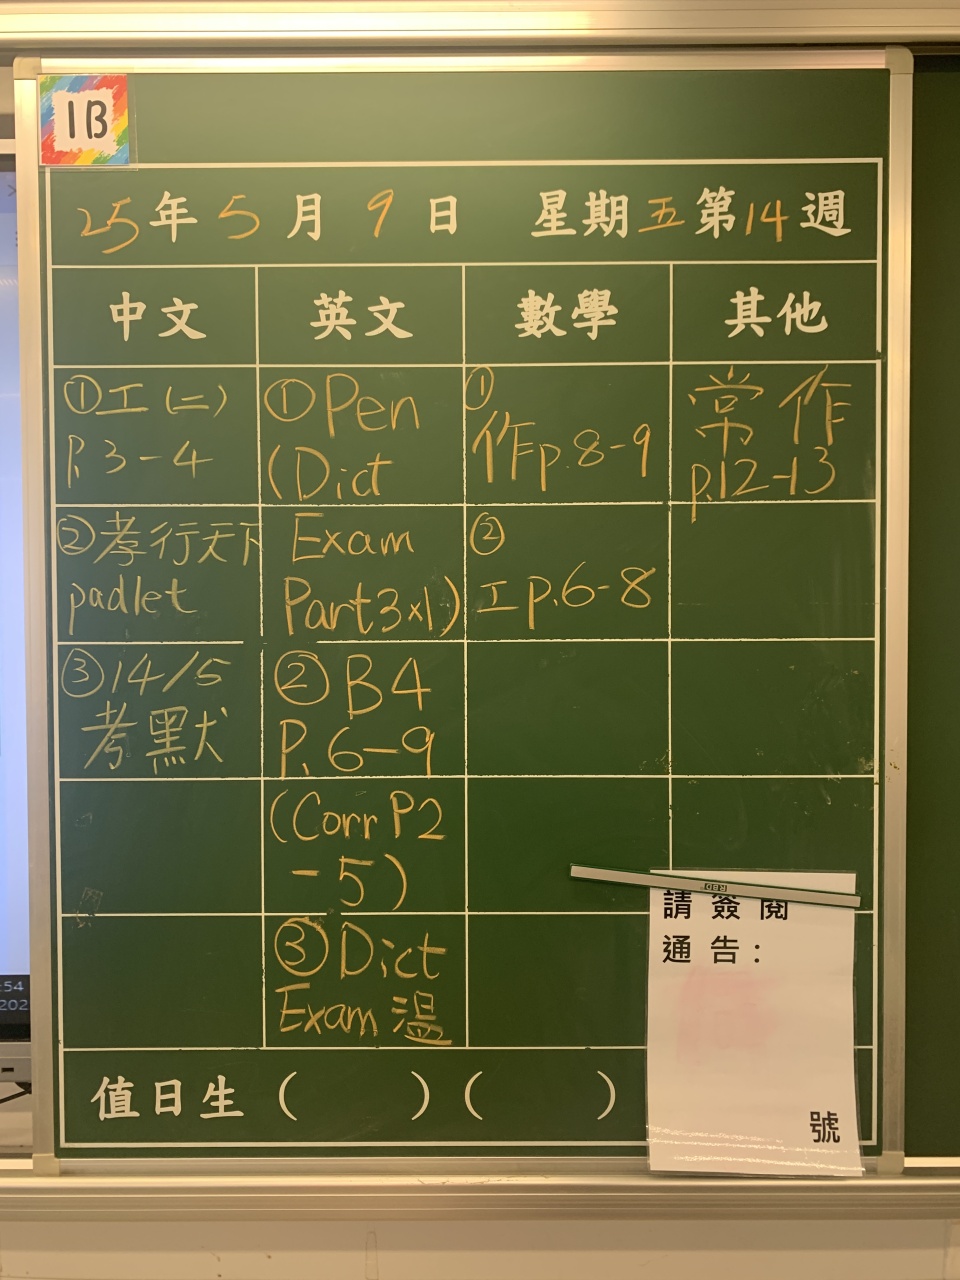 1B
25年5月9日 星期五第14週
中文 英文 數學 其他
①工(二)
P.3-4
②孝行天下
padlet
③14/5
考默
①Pen
(Dict
Exam
Part3×1)
②B4
P.6-9
(Corr P2
-5)
③Dict
Exam 溫
①
作p.8-9
②
工p.6-8
常作
p.12-13
RBD
請簽閱
通告：
號
值日生（ ）（ ）
:54
202